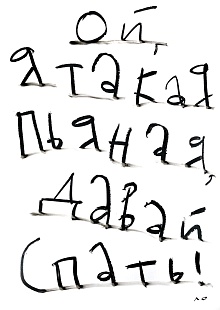 Ой,
я такая
пьяная,
давай
спать!